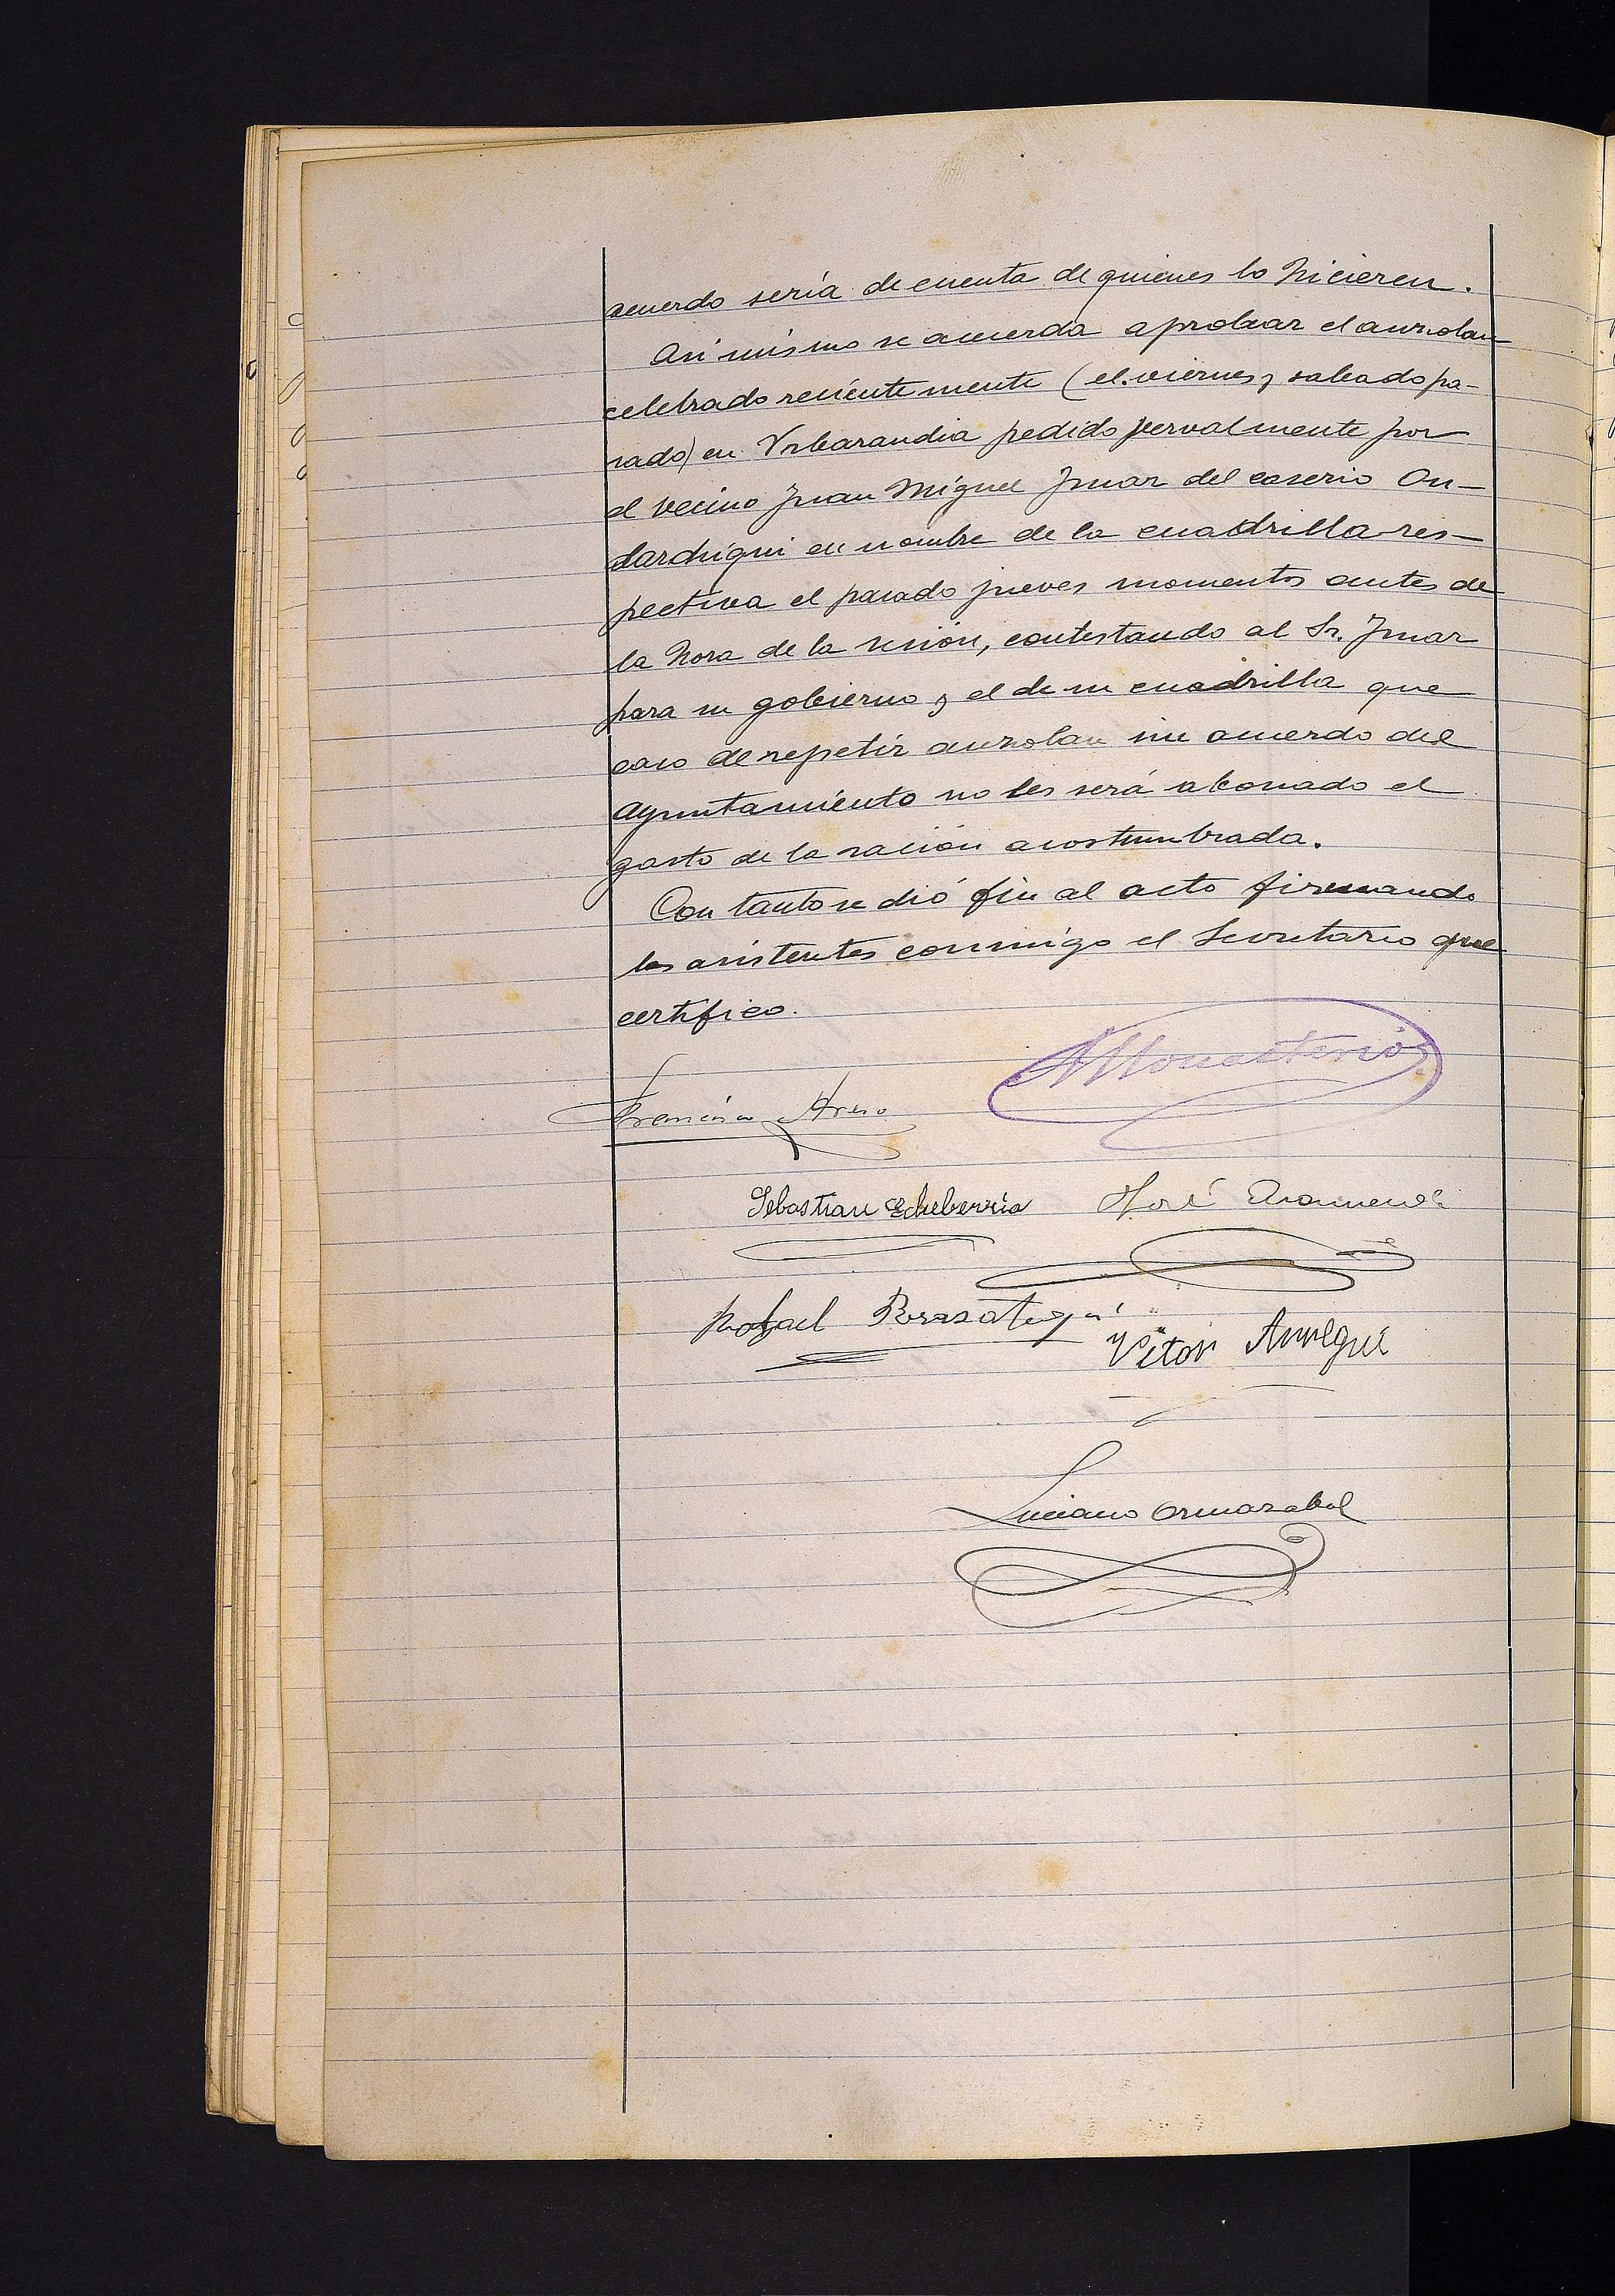 acuerdo sería de cuenta de quienes lo hicieren.
Asi mismo se acuerda aprobar el auzolan
celebrado recientemente (el viernes y sabado pa-
sado) en Urbarandia pedido vervalmente por
el vecino Juan Miguel Imaz del caserio On-
darchiqui en nombre de la cuadrilla res-
pectiva el pasado jueves momentos antes de
la hora de la sesión, contestando al Sr. Imaz
para su gobierno y el de su cuadrilla que
caso de repetir auzolan sin acuerdo del
Ayuntamiento no les será abonado el
gasto de la ración acostumbrada.
Con tanto se dió fin al acto firmando
los asistentes conmigo el Secretario que
certifico.
AMonasterio
Francisco
Sebastian Echeberria José
Rafael
Vitor
Luciano Ormazabal